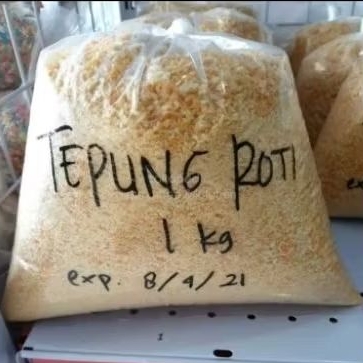 TEPUNG ROTI
1 kg
exp. 8/4/21